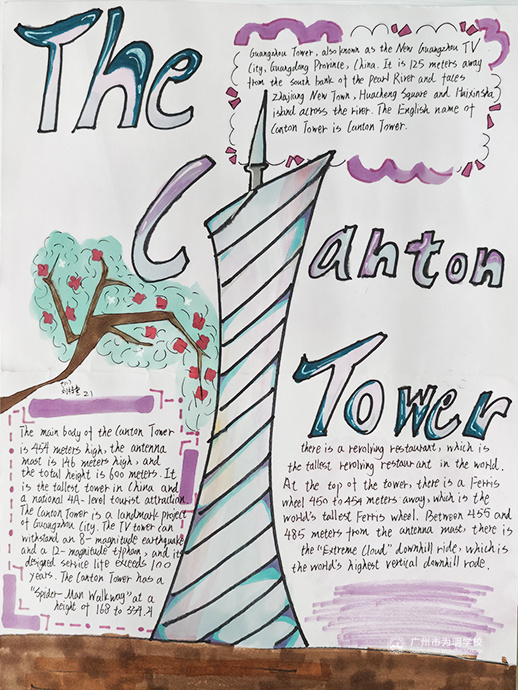 The
Canton
Tower
Guangzhou Tower, also known as the New Guangzhou TV
City, Guangdong Province, China. It is 125 meters away
from the south bank of the pearl River and faces
Zhajiang New Town, Huacheng Square and Haixinsha
island across the river. The English name of
Canton Tower is Canton Tower.
21
The main body of the Canton Tower
is 454 meters high, the antenna
mast is 146 meters high, and
the total height is 600 meters. It
is the tallest tower in China and
a national 4A-level tourist attraction.
The Canton Tower is a landmark project
of Guangzhou City. The TV tower can
withstand an 8-magnitude earthquake
and a 12-magnitude typhoon, and its
designed service life exceeds 100
years. The Canton Tower has a
"Spider-Man Walkway" at a
height of 168 to 334.4
there is a revolving restaurant, which is
the tallest revolving restaurant in the world.
At the top of the tower, there is a Ferris
wheel 450 to 454 meters away, which is the
world's tallest Ferris wheel. Between 455 and
485 meters from the antenna mast, there is
the "Extreme Cloud" downhill ride, which is
the world's highest vertical downhill rode.
广州市为明学校